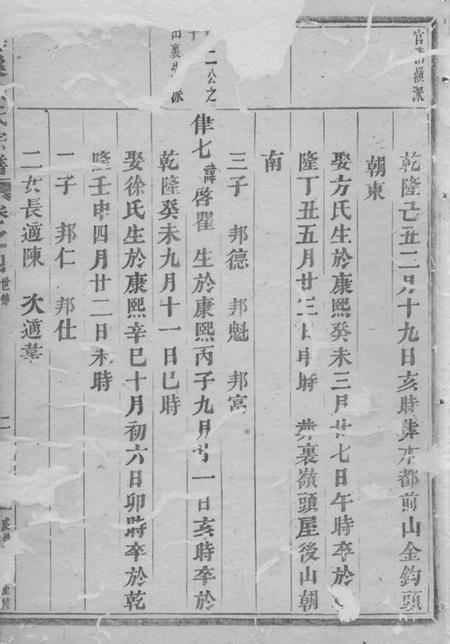 乾隆己丑二月十九日亥時葬本都前山金鈎頭
朝東
娶方氏生於康熙癸未三月廿七日午時卒於
隆丁丑五月廿三日申時 葬裏嶺頭屋後山朝
南
三子 邦德 邦魁 邦富
二公之
田裏 派
侓七 諱啓瞿 生於康熙丙子九月廿一日亥時卒於
乾隆癸未九月十一日巳時
娶徐氏生於康熙辛巳十月初六日卯時卒於乾
隆壬申四月廿二日未時
二子 邦仁 邦仕
二女長適陳 次適葉
氏宗譜 卷之 世傳 二